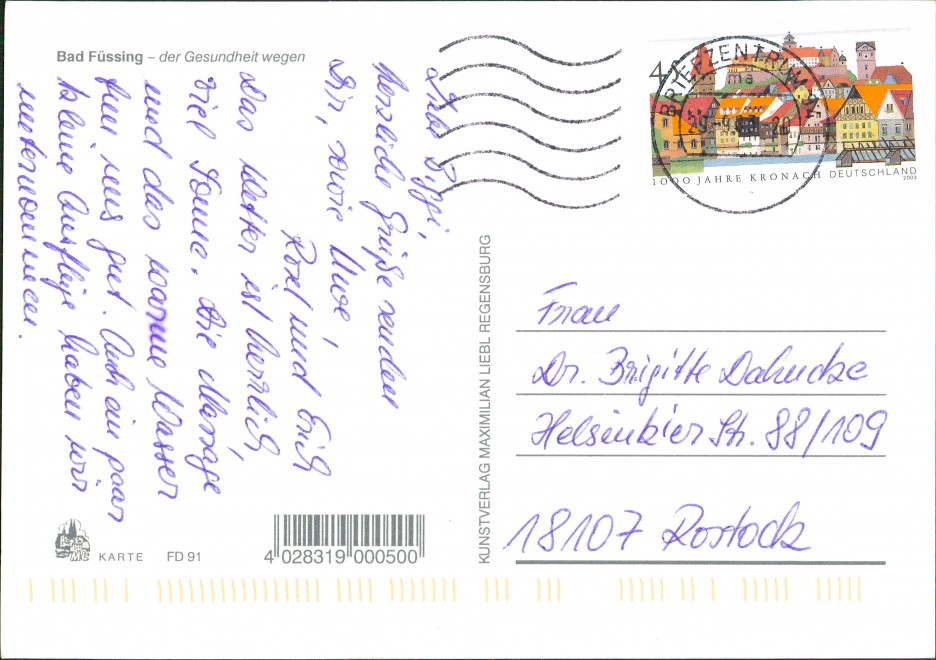 Bad Füssing – der Gesundheit wegen
Liebe Gitti,
herzliche Grüße senden
Dir, sowie Uwe,
Rosel und Erich
Das Wetter ist herrlich,
viel Sonne. Die Massage
und das warme Wasser
tun uns gut. Auch ein paar
kleine Ausflüge haben wir
unternommen.
KARTE FD 91
4 028319 000500
KUNSTVERLAG MAXIMILIAN LIEBL REGENSBURG
BRIEFZENTRUM
1000 JAHRE KRONACH DEUTSCHLAND
2003
Frau
Dr. Brigitte Dahncke
Helsinkier Str. 88/109
18107 Rostock